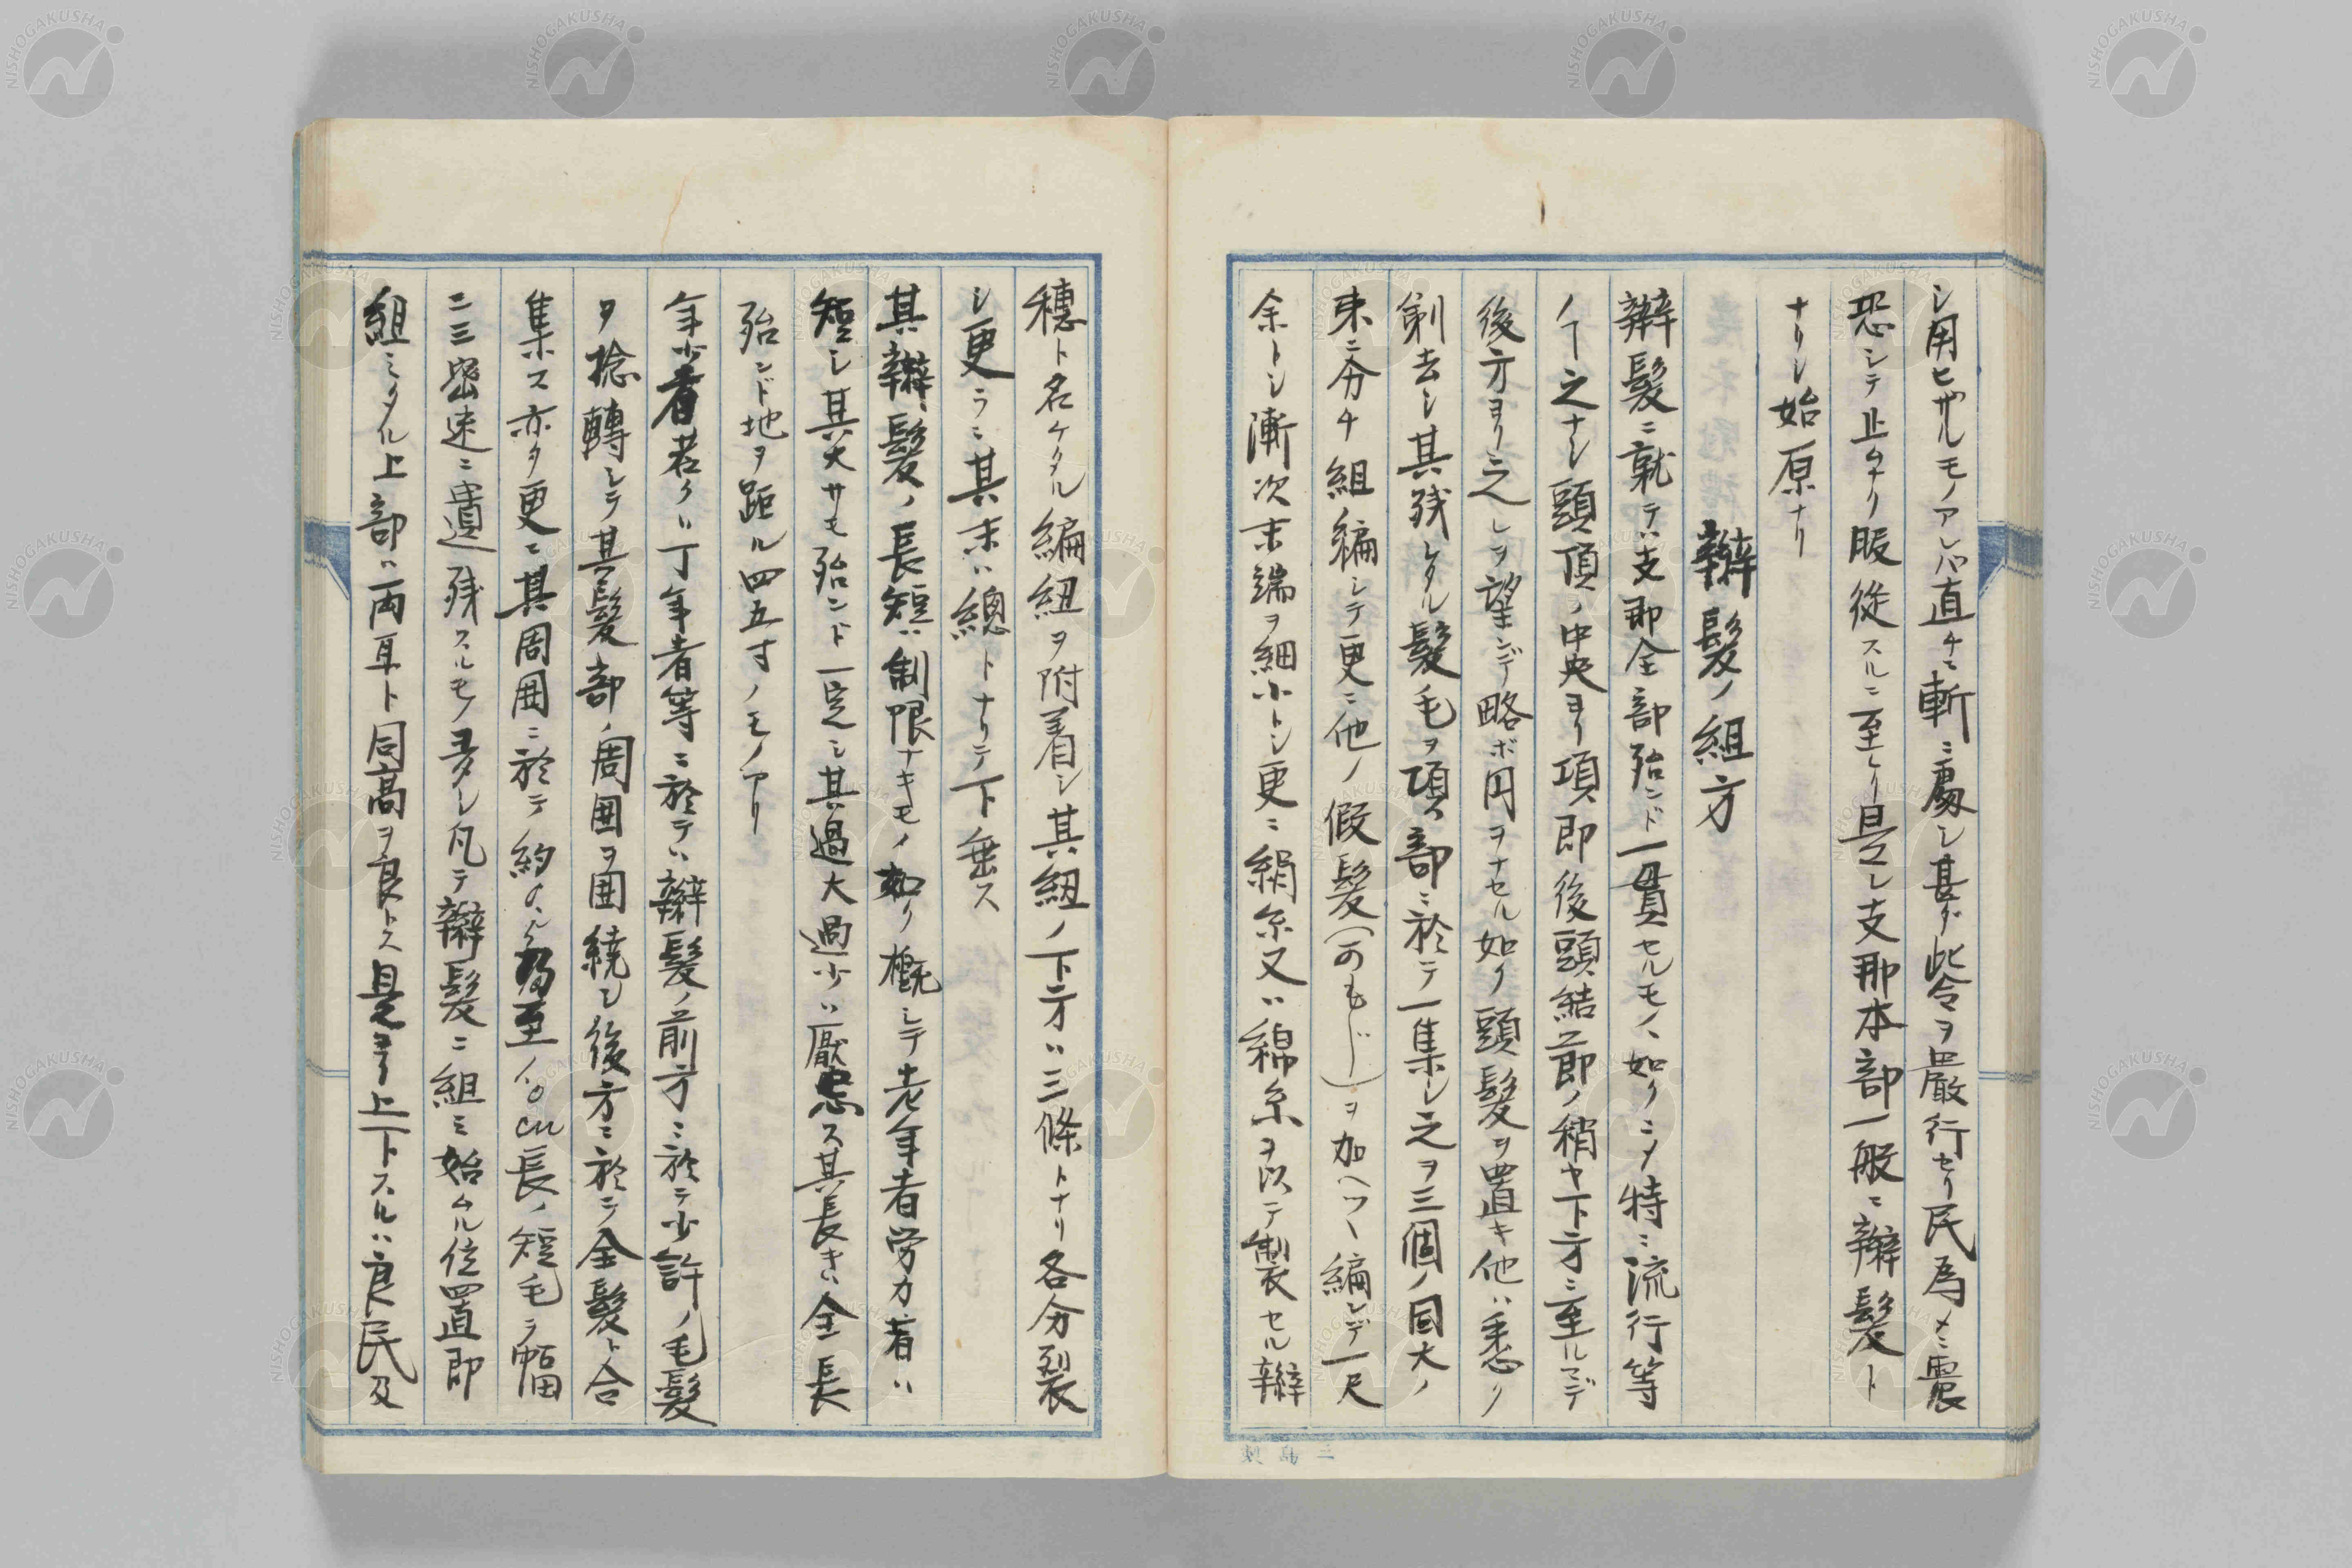 シ用ヒザルモノアレバ直チニ斬ニ處シ甚ダ此令ヲ嚴行セリ民為メニ震
恐シテ止ムナリ服従スルニ至レリ是レ支那本部一般ニ辮髪ト
ナリシ始原ナリ
辮髪ノ組方
辮髪ニ就テハ支那全部殆ンド一貫セルモノヽ如クニシテ特ニ流行等
ノ之ナシ頭頂ノ中央ヨリ項即後頭結節ノ稍ヤ下方ニ至ルマデ
後方ヨリ之レヲ望ンデ略ボ円ヲナセル如ク頭髪ヲ置キ他ハ悉ク
剃去シ其残シタル髪毛ヲ項部ニ於テ一集シ之ヲ三個ノ同大ノ
束ニ分チ組編シテ更ニ他ノ假髪(かもじ)ヲ加ヘツヽ編ンデ一尺
余トシ漸次末端ヲ細小トシ更ニ絹糸又ハ綿糸ヲ以テ製セル辮
穂ト名ケタル編紐ヲ附着シ其紐ノ下方ハ三條トナリ各分裂
シ更ラニ其末ハ總トナリテ下垂ス
其辮髪ノ長短ハ制限ナキモノ如ク概シテ老年者労力者ハ
短シ其大サモ殆ンド一定シ其過大過少ハ厭忌ス其長キハ全長
殆ンド地ヲ距ル四五寸ノモノアリ
年少者若クハ丁年者等ニ於テハ辮髪ノ前方ニ於テ少許ノ毛髪
ヲ捻轉シテ其髪部ノ周囲ヲ囲繞シ後方ニ於テ全髪ト合
集ス亦タ更ニ其周囲ニ於テ約0.5乃至1.0cm長ノ短毛ヲ幅
ニ三密迷ニ遺残スルモノ多シ凡テ辮髪ニ組ミ始ムル位置即
組ミタル上部ハ両耳ト同高ヲ良トス是ヨリ上下スルハ良民及